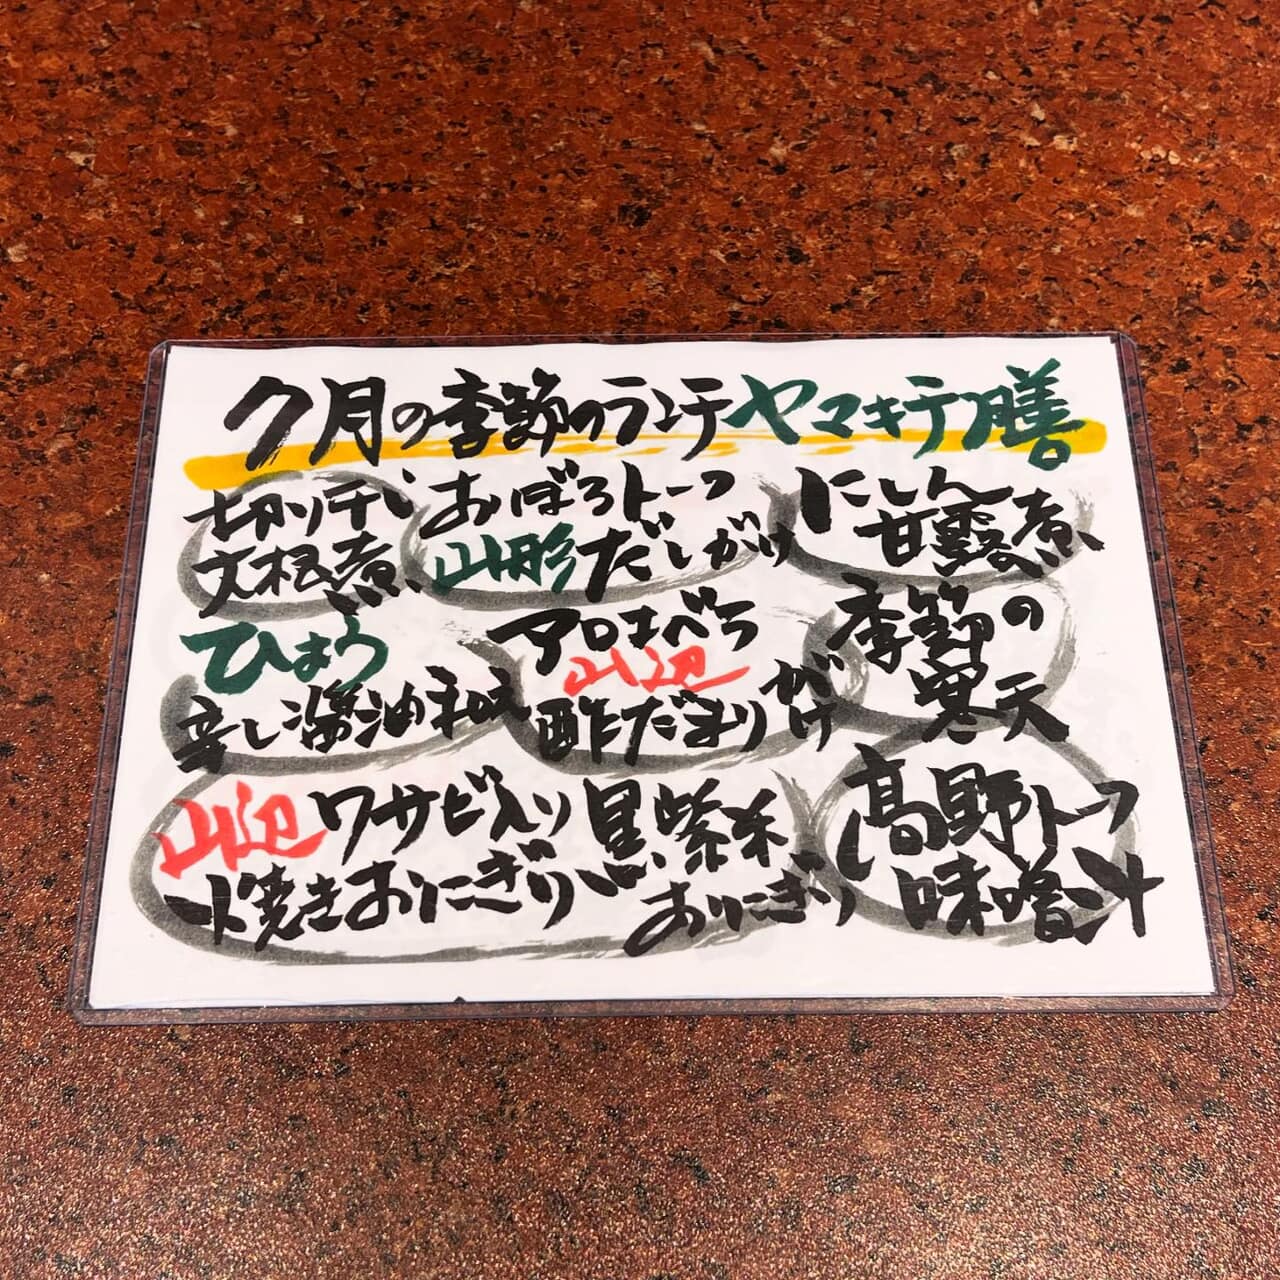 7月の季節のランチヤマキチ膳
切り干し大根煮
おぼろトーフ山形だしがけ
にしん甘露煮
ひょう辛し醤油和え
アロエベラ山辺酢だまりがけ
季節の寒天
山辺ワサビ入りド焼きおにぎり
黒、紫米おにぎり
高野トーフ味噌汁